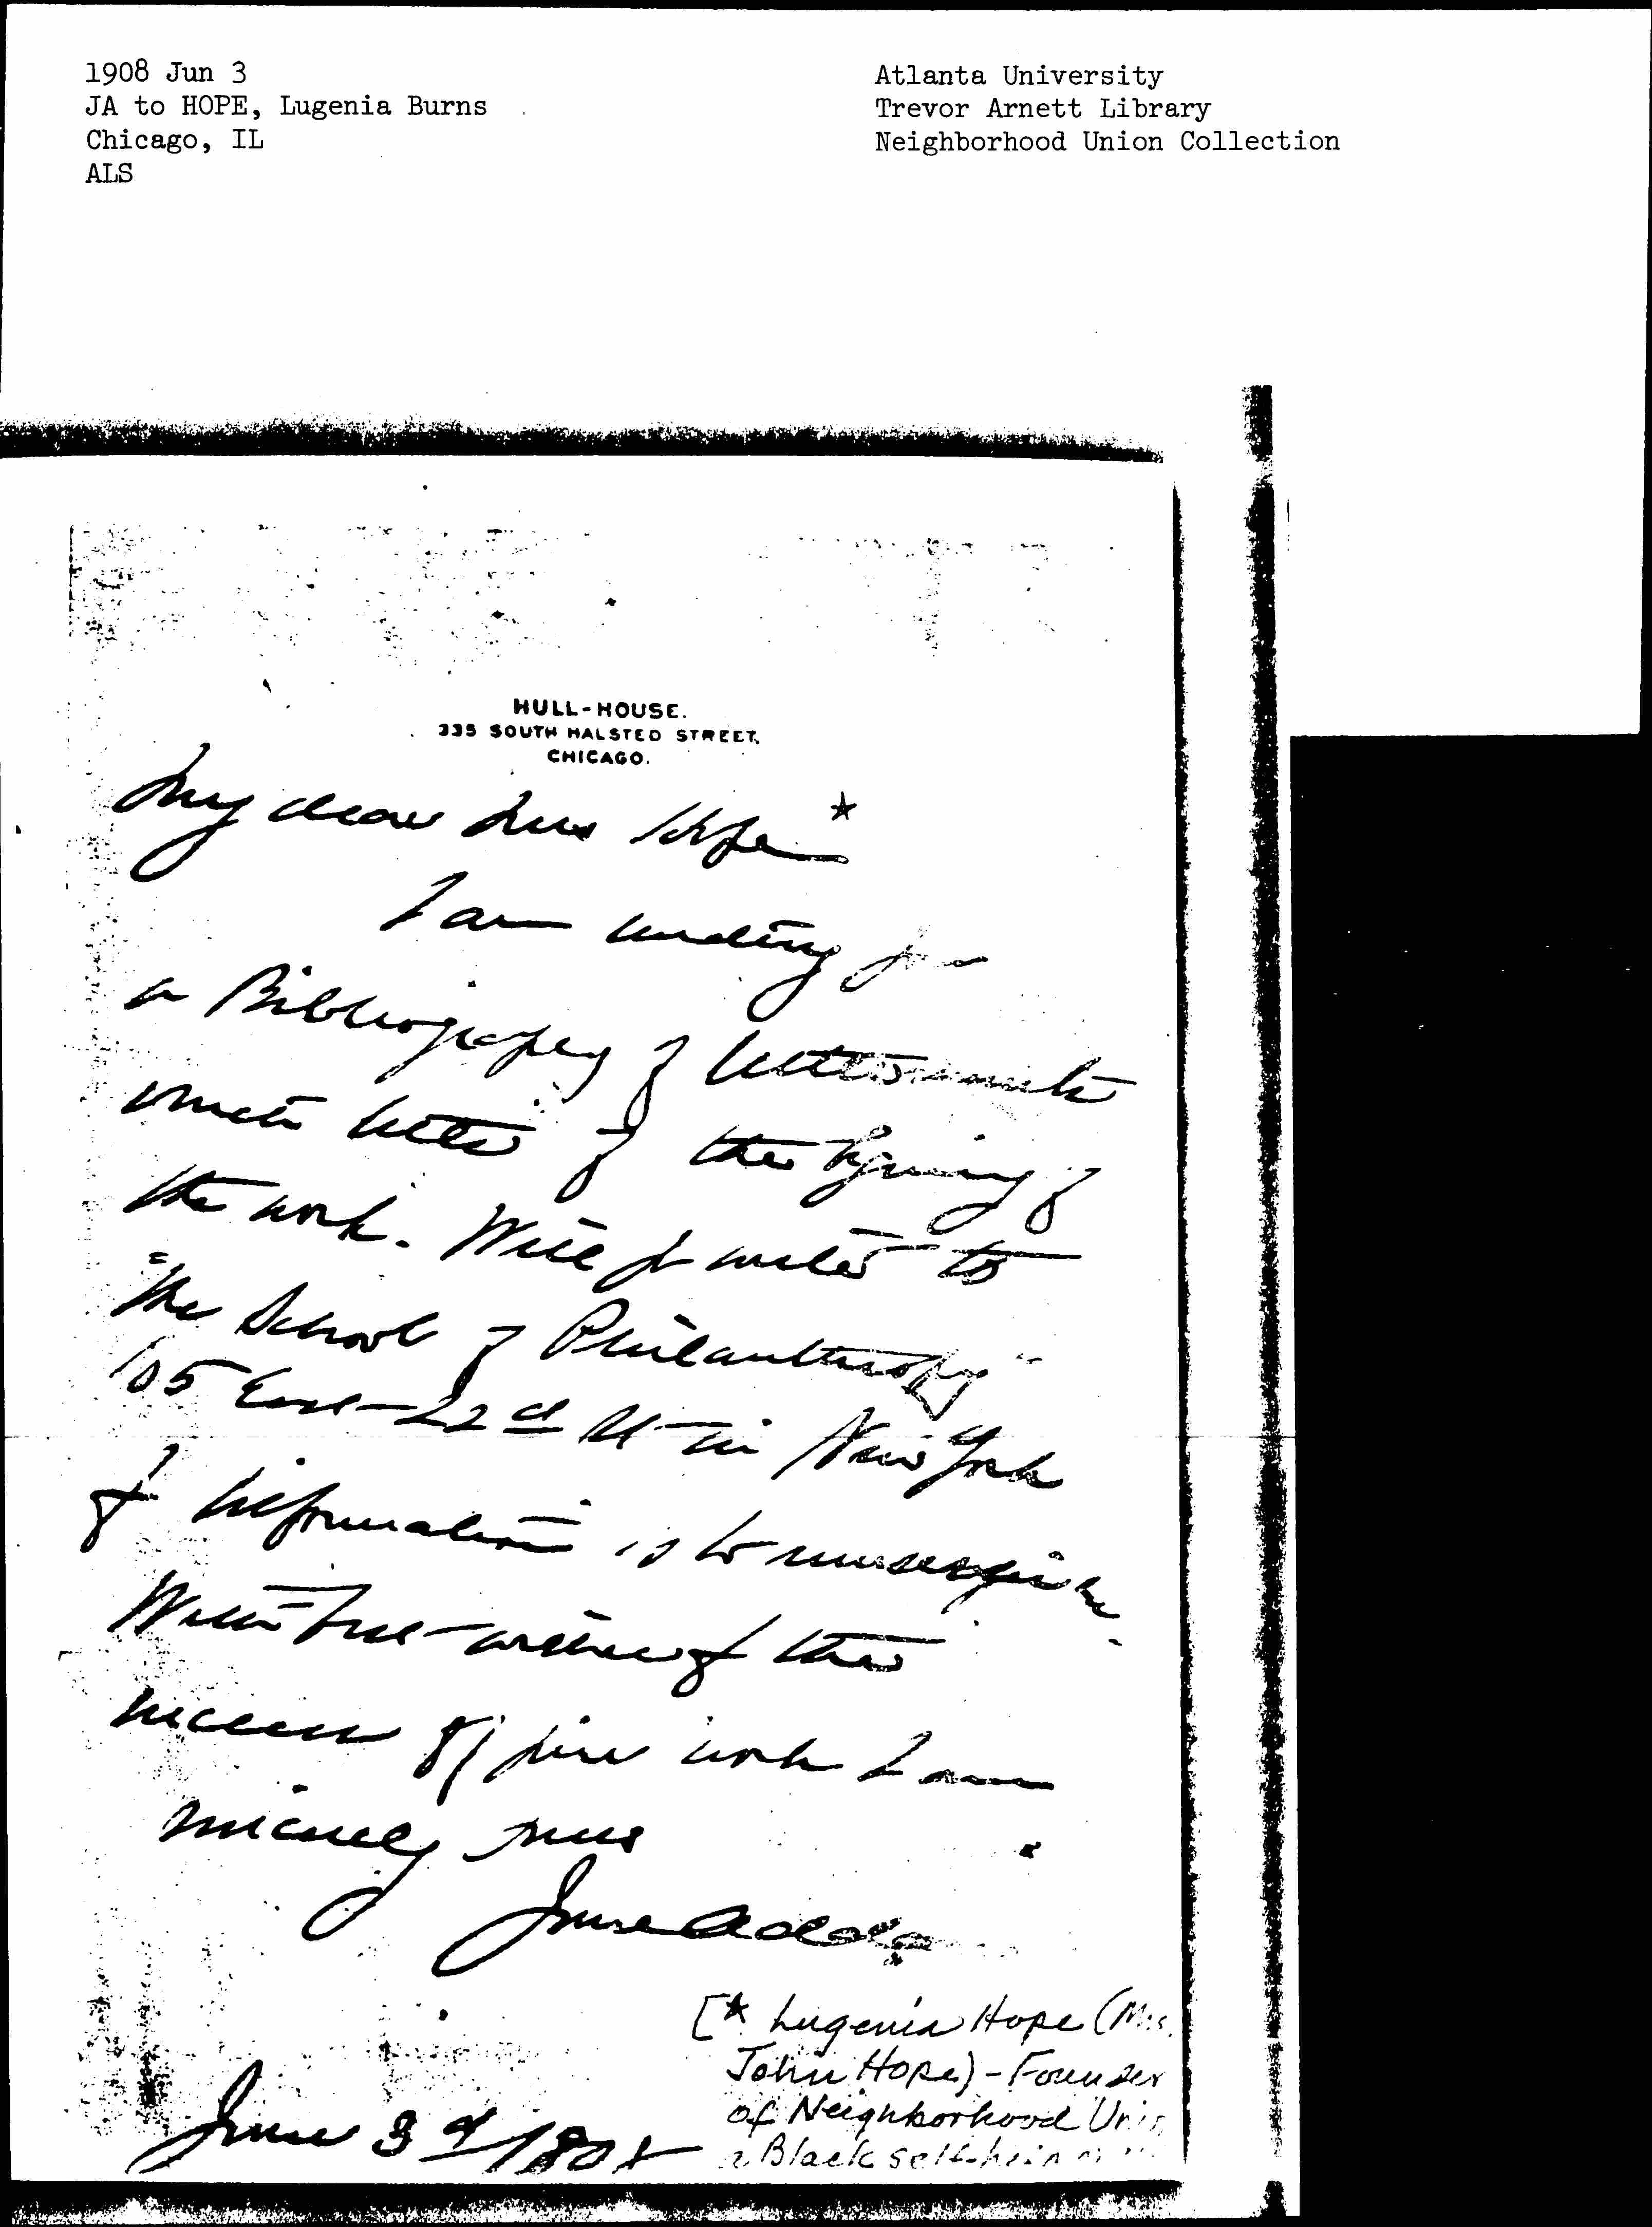 1908 Jun 3
JA to HOPE, Lugenia Burns
Chicago, IL
ALS
Atlanta University
Trevor Arnett Library
Neighborhood Union Collection
HULL-HOUSE.
335 SOUTH HALSTED STREET,
CHICAGO.
My dear Mrs Hope *
I am sending you
a Bibliography of Settlements
which tells of the beginning of
the work. Will you write to
"The School of Philanthropy"
105 East 22d St in New York
if information is to
With best wishes for the
success of your work I am
sincerely yours
Jane Addams
June 3d 1908
[* Lugenia Hope (Mrs.
John Hope) - Founder
of Neighborhood
a Black self-